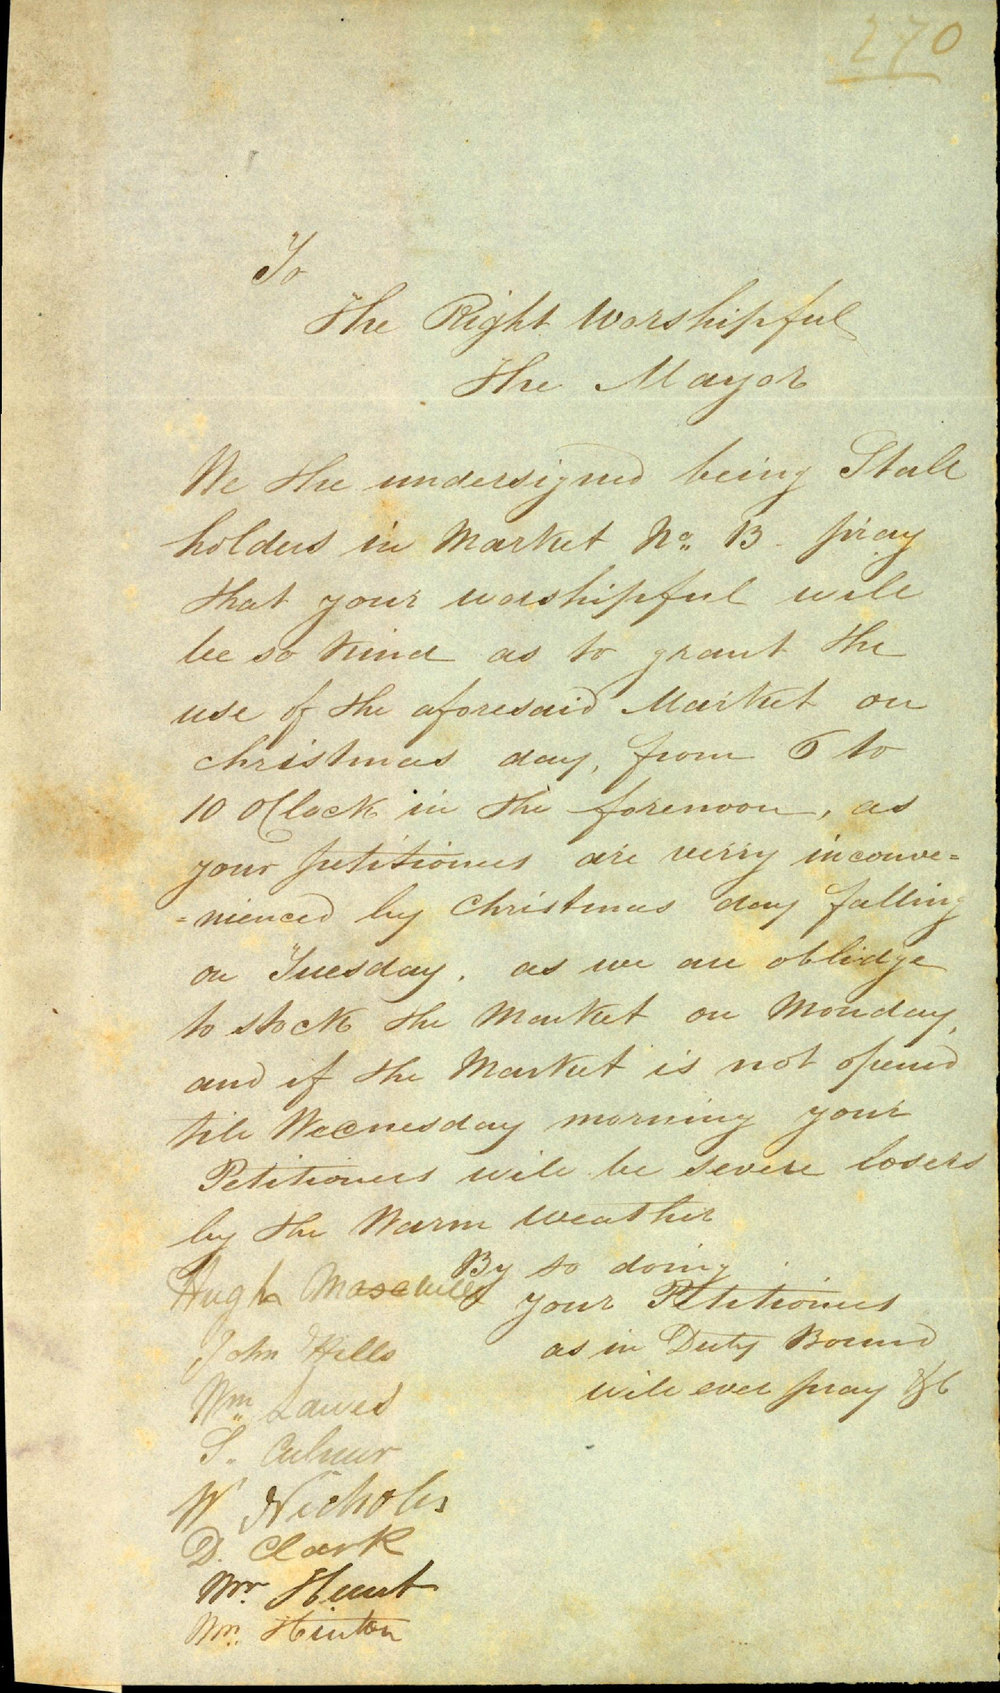 270
To
The Right Worshipful
The Mayor
We the undersigned being Stall
holders in Market No. 13 pray
that your worshipful will
be so kind as to grant the
use of the aforesaid Market on
christmas day, from 6 to
10 OClock in the forenoon, as
your petitioners are verry inconve=
=nienced by Christmas day falling
on Tuesday. as we are oblidge
to stock the Market on Monday,
and if the Market is not opened
till Wecnesday morning your
Petitioners will be severe losers
by the Warm Weather
By so doing
your Petitioners
as in Duty Bound
will ever pray &c
Hugh
John Hills
Wm Lawes
S.
W Nichols
D. Clark
Mr. Hunt
Wm. Hinton